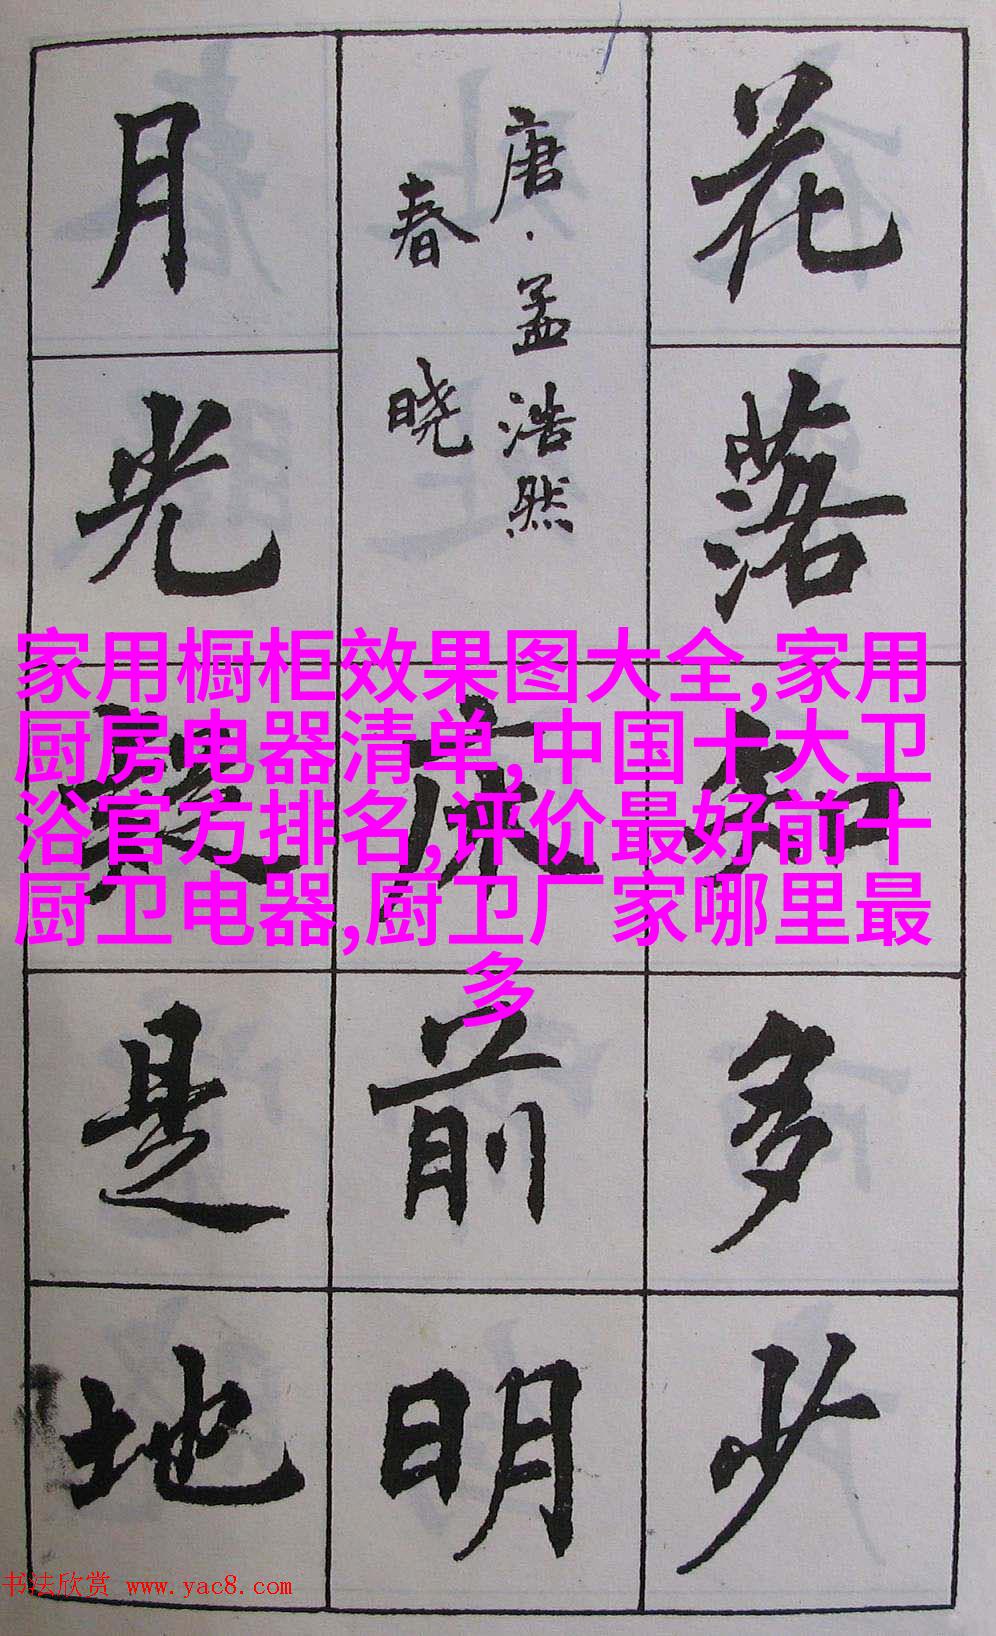 花落知多少
唐·孟浩然
春晓
床前明
月光疑是地
家用橱柜效果图大全,家用
厨房电器清单,中国十大卫
浴官方排名,评价最好前十
厨卫电器,厨卫厂家哪里最
多
书法欣赏 www.yac8.com